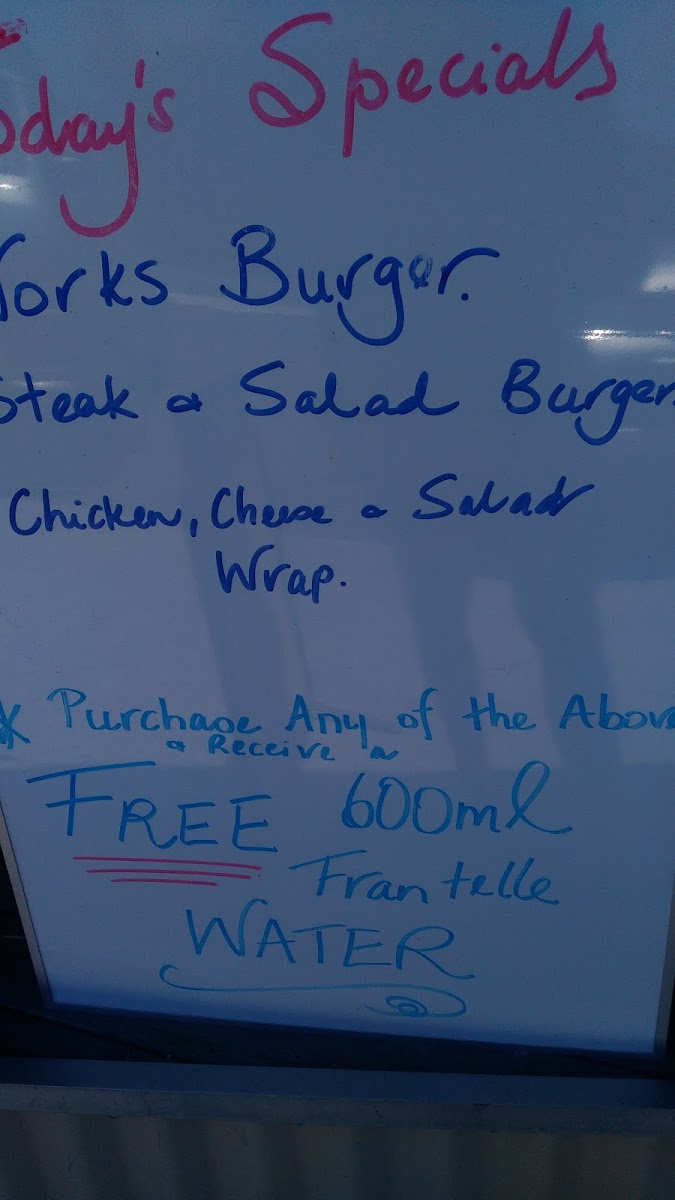 Today's Specials
Works Burger.
Steak & Salad Burger.
Chicken, Cheese & Salad
Wrap.
* Purchase Any of the Above
& Receive a
FREE 600ml
Frantelle
WATER